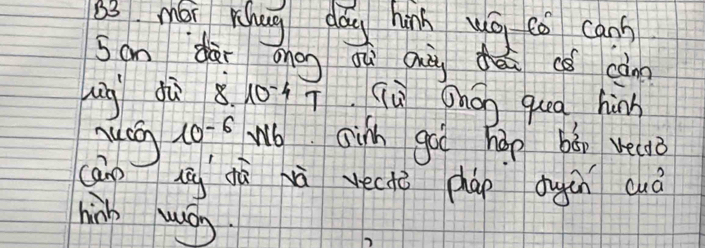 B3. Một khung dây hình vuông có cạnh
5 cm đặt trong từ trường đều có cảm
ứng từ 8.10-4 T. Từ thông qua hình
vuông 10-6 Wb. Tính góc hợp bởi vectơ
cảm ứng từ và vectơ pháp tuyến của
hình vuông.